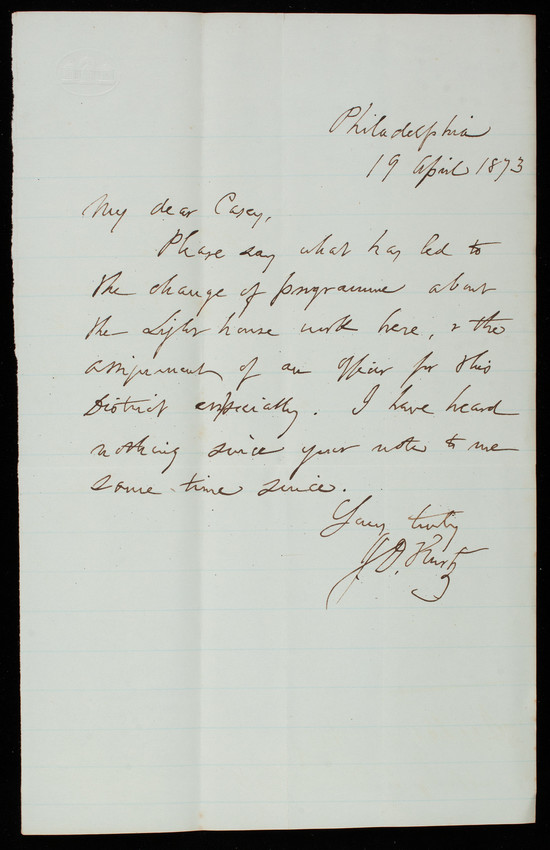 Philadelphia
19 April 1873
My dear Casey,
Please say what has led to
the change of programme about
the Light house work here, & the
assignment of an officer for this
District especially. I have heard
nothing since your note to me
some time since.
Yours truly
J. D. Kurtz